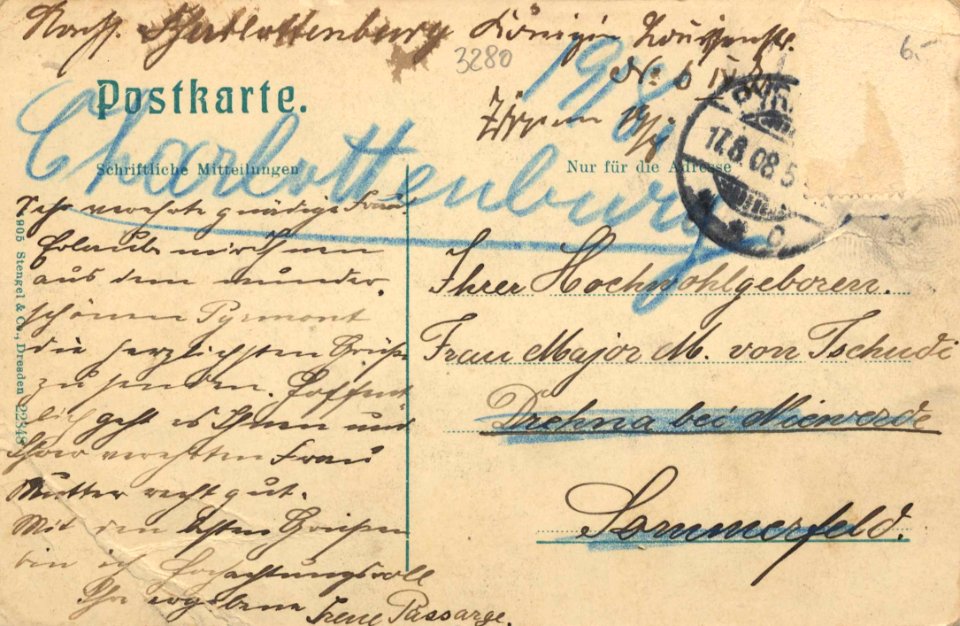 Nach. Charlottenburg Königin Louisenstr.
3280
6.-
No 6
Postkarte.
Charlottenburg
Schriftliche Mitteilungen
Nur für die Adresse
17.8.08.5
C
Sehr verehrte gnädige Frau
Erlaube mir Ihnen
aus dem wunder-
schönen Pyrmont
die herzlichsten Grüße
zu senden. Hoffent
lich geht es Ihnen und
Ihrer verehrten Frau
Mutter recht gut.
Mit den besten Grüßen
bin ich Hochachtungsvoll
Ihre ergebene Irene Passarge.
Ihrer Hochwohlgeboren.
Frau Major M. von Tschudi
Drehna bei Niewerde
Sommerfeld.
1905 Stengel & Co., Dresden